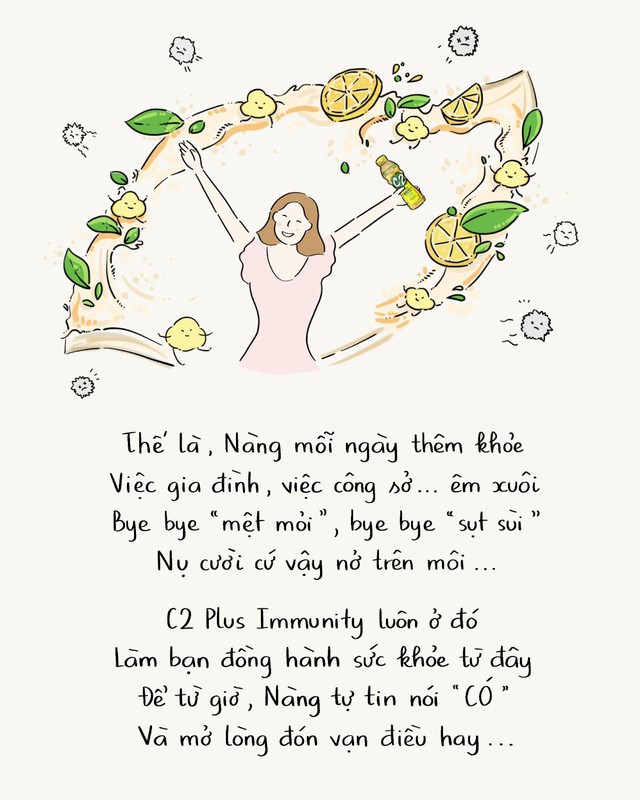 C2
Thế là, Nàng mỗi ngày thêm khỏe
Việc gia đình, việc công sở... êm xuôi
Bye bye “mệt mỏi”, bye bye “sụt sùi”
Nụ cười cứ vậy nở trên môi...
C2 Plus Immunity luôn ở đó
Làm bạn đồng hành sức khỏe từ đây
Để từ giờ, Nàng tự tin nói “CÓ”
Và mở lòng đón vạn điều hay...